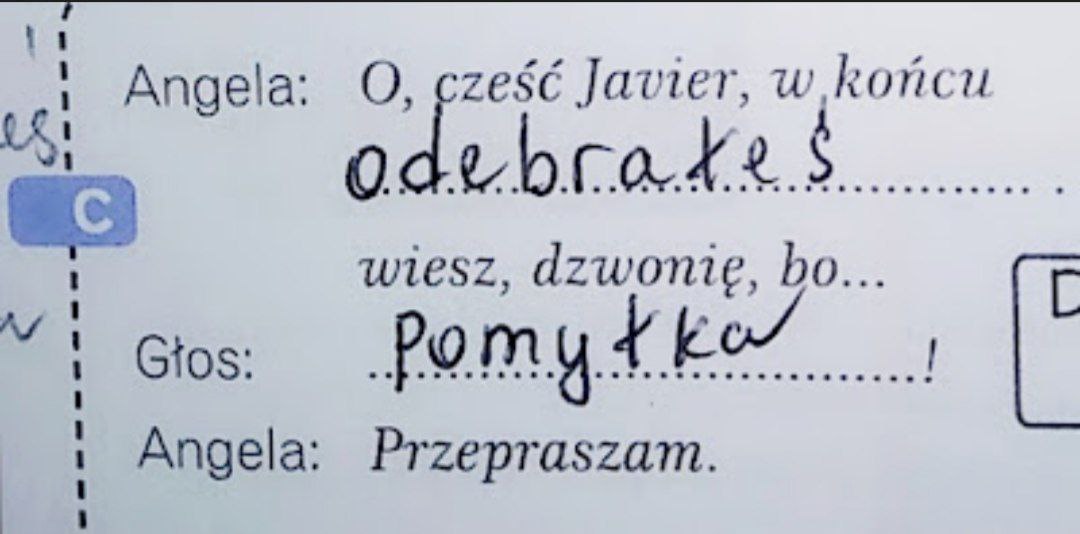 Angela: O, cześć Javier, w końcu
odebrałeś .
C
wiesz, dzwonię, bo...
Głos: Pomyłka !
Angela: Przepraszam.